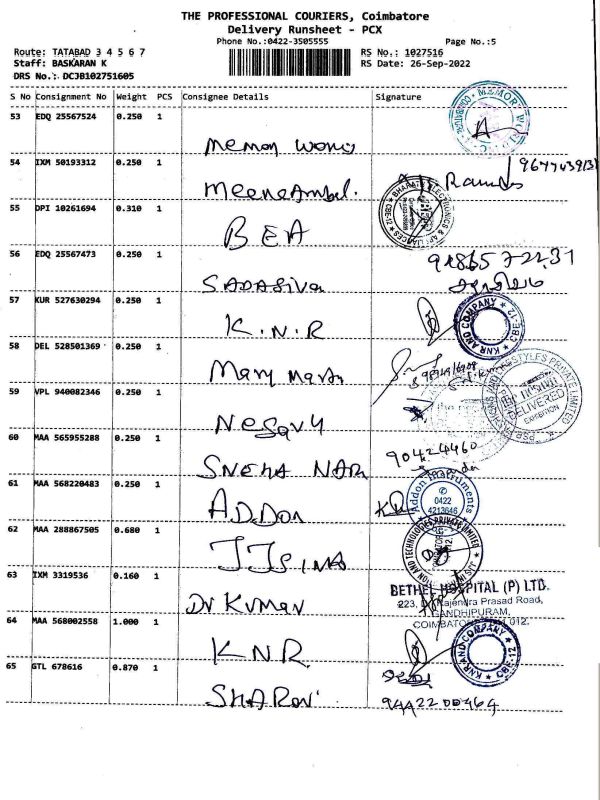 THE PROFESSIONAL COURIERS, Coimbatore
Delivery Runsheet - PCX
Phone No.:0422-3505555
Page No.:5
Route: TATABAD 3 4 5 6 7
RS No.: 1027516
Staff: BASKARAN K
RS Date: 26-Sep-2022
DRS No.: DCJB102751605
S No Consignment No Weight PCS Consignee Details Signature
53 EDQ 25567524 0.250 1
54 IXM 50193312 0.250 1
Meeneambal.
55 DPI 10261694 0.310 1
BHARAT ELECTRONICS & APPLIANCES
CBE-12
BEA
56 EDQ 25567473 0.250 1
SADASIVA
57 KUR 527630294 0.250 1
K.N.R
KNR AND COMPANY
CBE-12
58 DEL 528501369 0.250 1
Mary
59 VPL 940082346 0.250 1
STYLES PRIVATE LIMITED
DELIVERED
EXHIBITION
60 MAA 565955288 0.250 1
SNEHA
61 MAA 568220483 0.250 1
ADDON
Addon Instruments
0422
4213646
62 MAA 288867505 0.680 1
TECHNOLOGIES PRIVATE LIMITED
63 IXM 3319536 0.160 1
Dr Kumar
BETHEL HOSPITAL (P) LTD.
223, Rajendra Prasad Road,
GANDHIPURAM,
COIMBATORE 012.
64 MAA 568002558 1.000 1
KNR
KNR AND COMPANY
CBE-12
65 GTL 678616 0.870 1
SHARON
9442200464